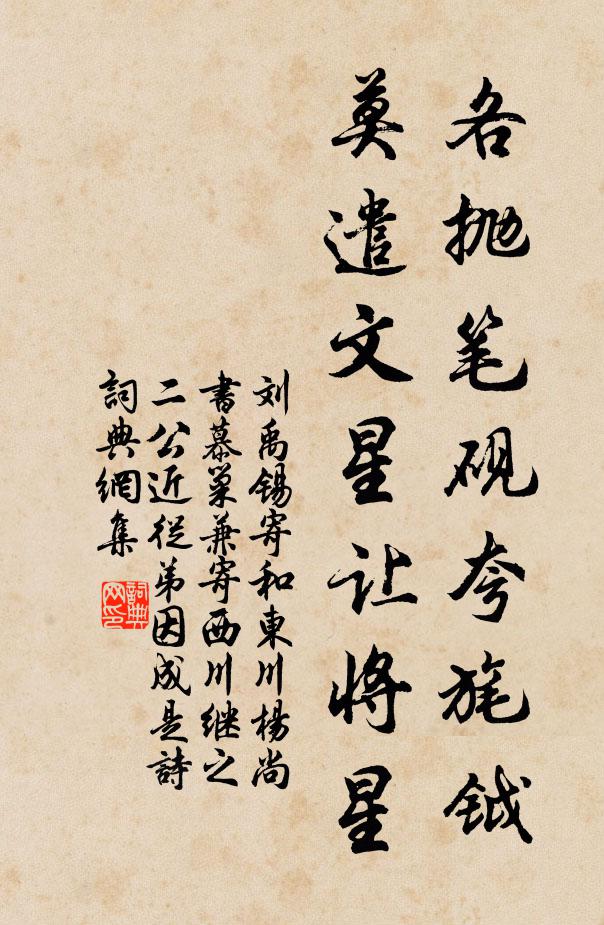 各抛笔砚夸旄钺
莫遣文星让将星
刘禹锡寄和東川楊尚
書慕巢兼寄西川继之
二公近從弟因成是詩
詞典網集
詞典网印